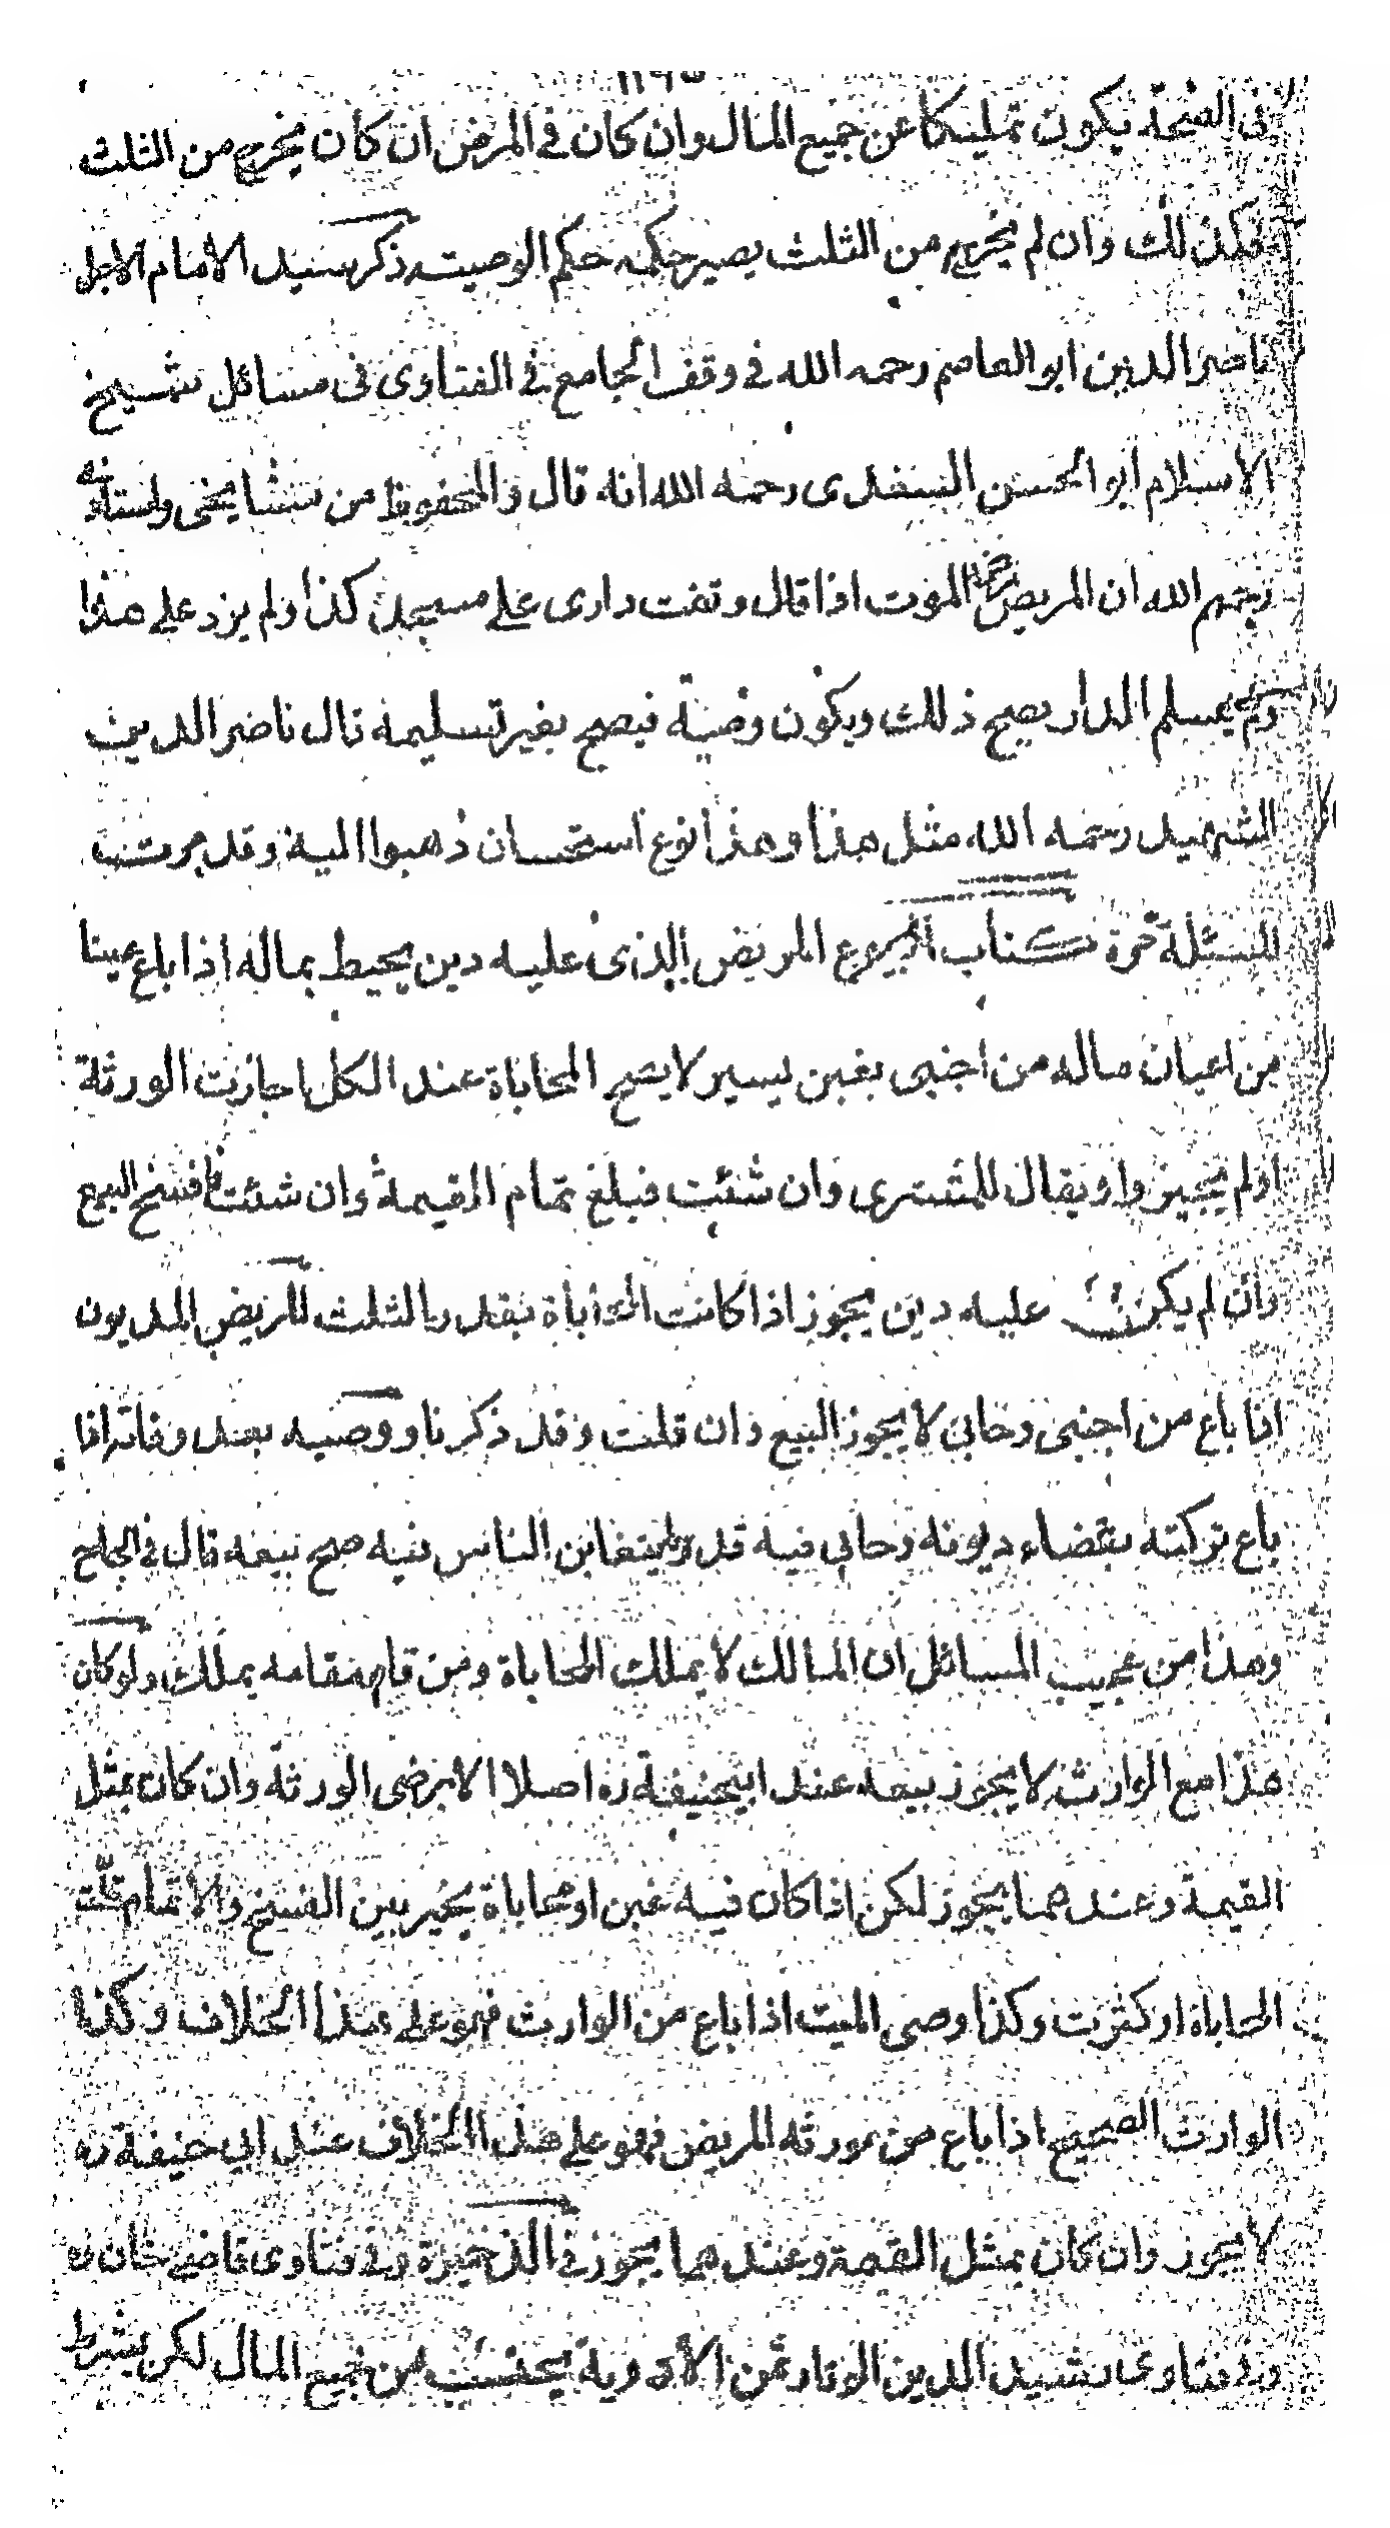 في الصحة يكون تمليكا عن جميع المال وان كان في المرض ان كان يخرج من الثلث
فكذلك وان لم يخرج من الثلث يصير حكمه حكم الوصية ذكر سيد الامام الاجل
ناصر الدين ابو القاسم رحمه الله في وقف الجامع في الفتاوى في مسائل شيخ
الاسلام ابو الحسن السغدى رحمه الله انه قال والمحفوظ من مشايخى واستاذيه
رحمهم الله ان المريض مرض الموت اذا قال وقفت دارى على مسجد كذا ولم يزد على هذا
ولم يسلم الدار يصح ذلك ويكون وصية فيصح بغير تسليمه قال ناصر الدين
الشهيد رحمه الله مثل هذا وهذا نوع استحسان ذهبوا اليه وقد مرت
المسئلة مرة كتاب البيوع المريض الذى عليه دين يحيط بماله اذا باع عينا
من اعيان ماله من اجنبى بغبن يسير لا يصح المحاباة عند الكل اجازت الورثة
اولم يجيزوا ويقال للمشترى وان شئت فبلغ تمام القيمة وان شئت فافسخ البيع
وان لم يكن عليه دين يجوز اذا كانت المحاباة بقدر الثلث المريض المديون
اذا باع من اجنبى وحابى لا يجوز البيع وان قلت وقد ذكرنا ووصيه بعد وفاته اذا
باع تركته بقضاء ديونه وحابى فيه قدر ما يتغابن الناس فيه صح بيعه قال في الجامع
وهذا من عجيب المسائل ان المالك لا يملك المحاباة ومن قام مقامه يملك ولو كان
هذا مع الوارث لا يجوز بيعه عند ابيحنيفة ره اصلا الا برضى الورثة وان كان بمثل
القيمة وعندهما يجوز لكن اذا كان فيه غبن او محاباة يخير بين الفسخ والاتمام قلت
المحاباة او كثرت وكذا وصى الميت اذا باع من الوارث فهو على هذا الخلاف وكذا
الوارث الصحيح اذا باع من مورثه المريض فهو على هذا الخلاف عند ابى حنيفة ره
لا يجوز وان كان بمثل القيمة وعندهما يجوز في الذخيرة وفى فتاوى قاضى خان ره
وفى فتاوى رشيد الدين الوتار ثمن الادوية يحتسب من جميع المال لكن بشرط